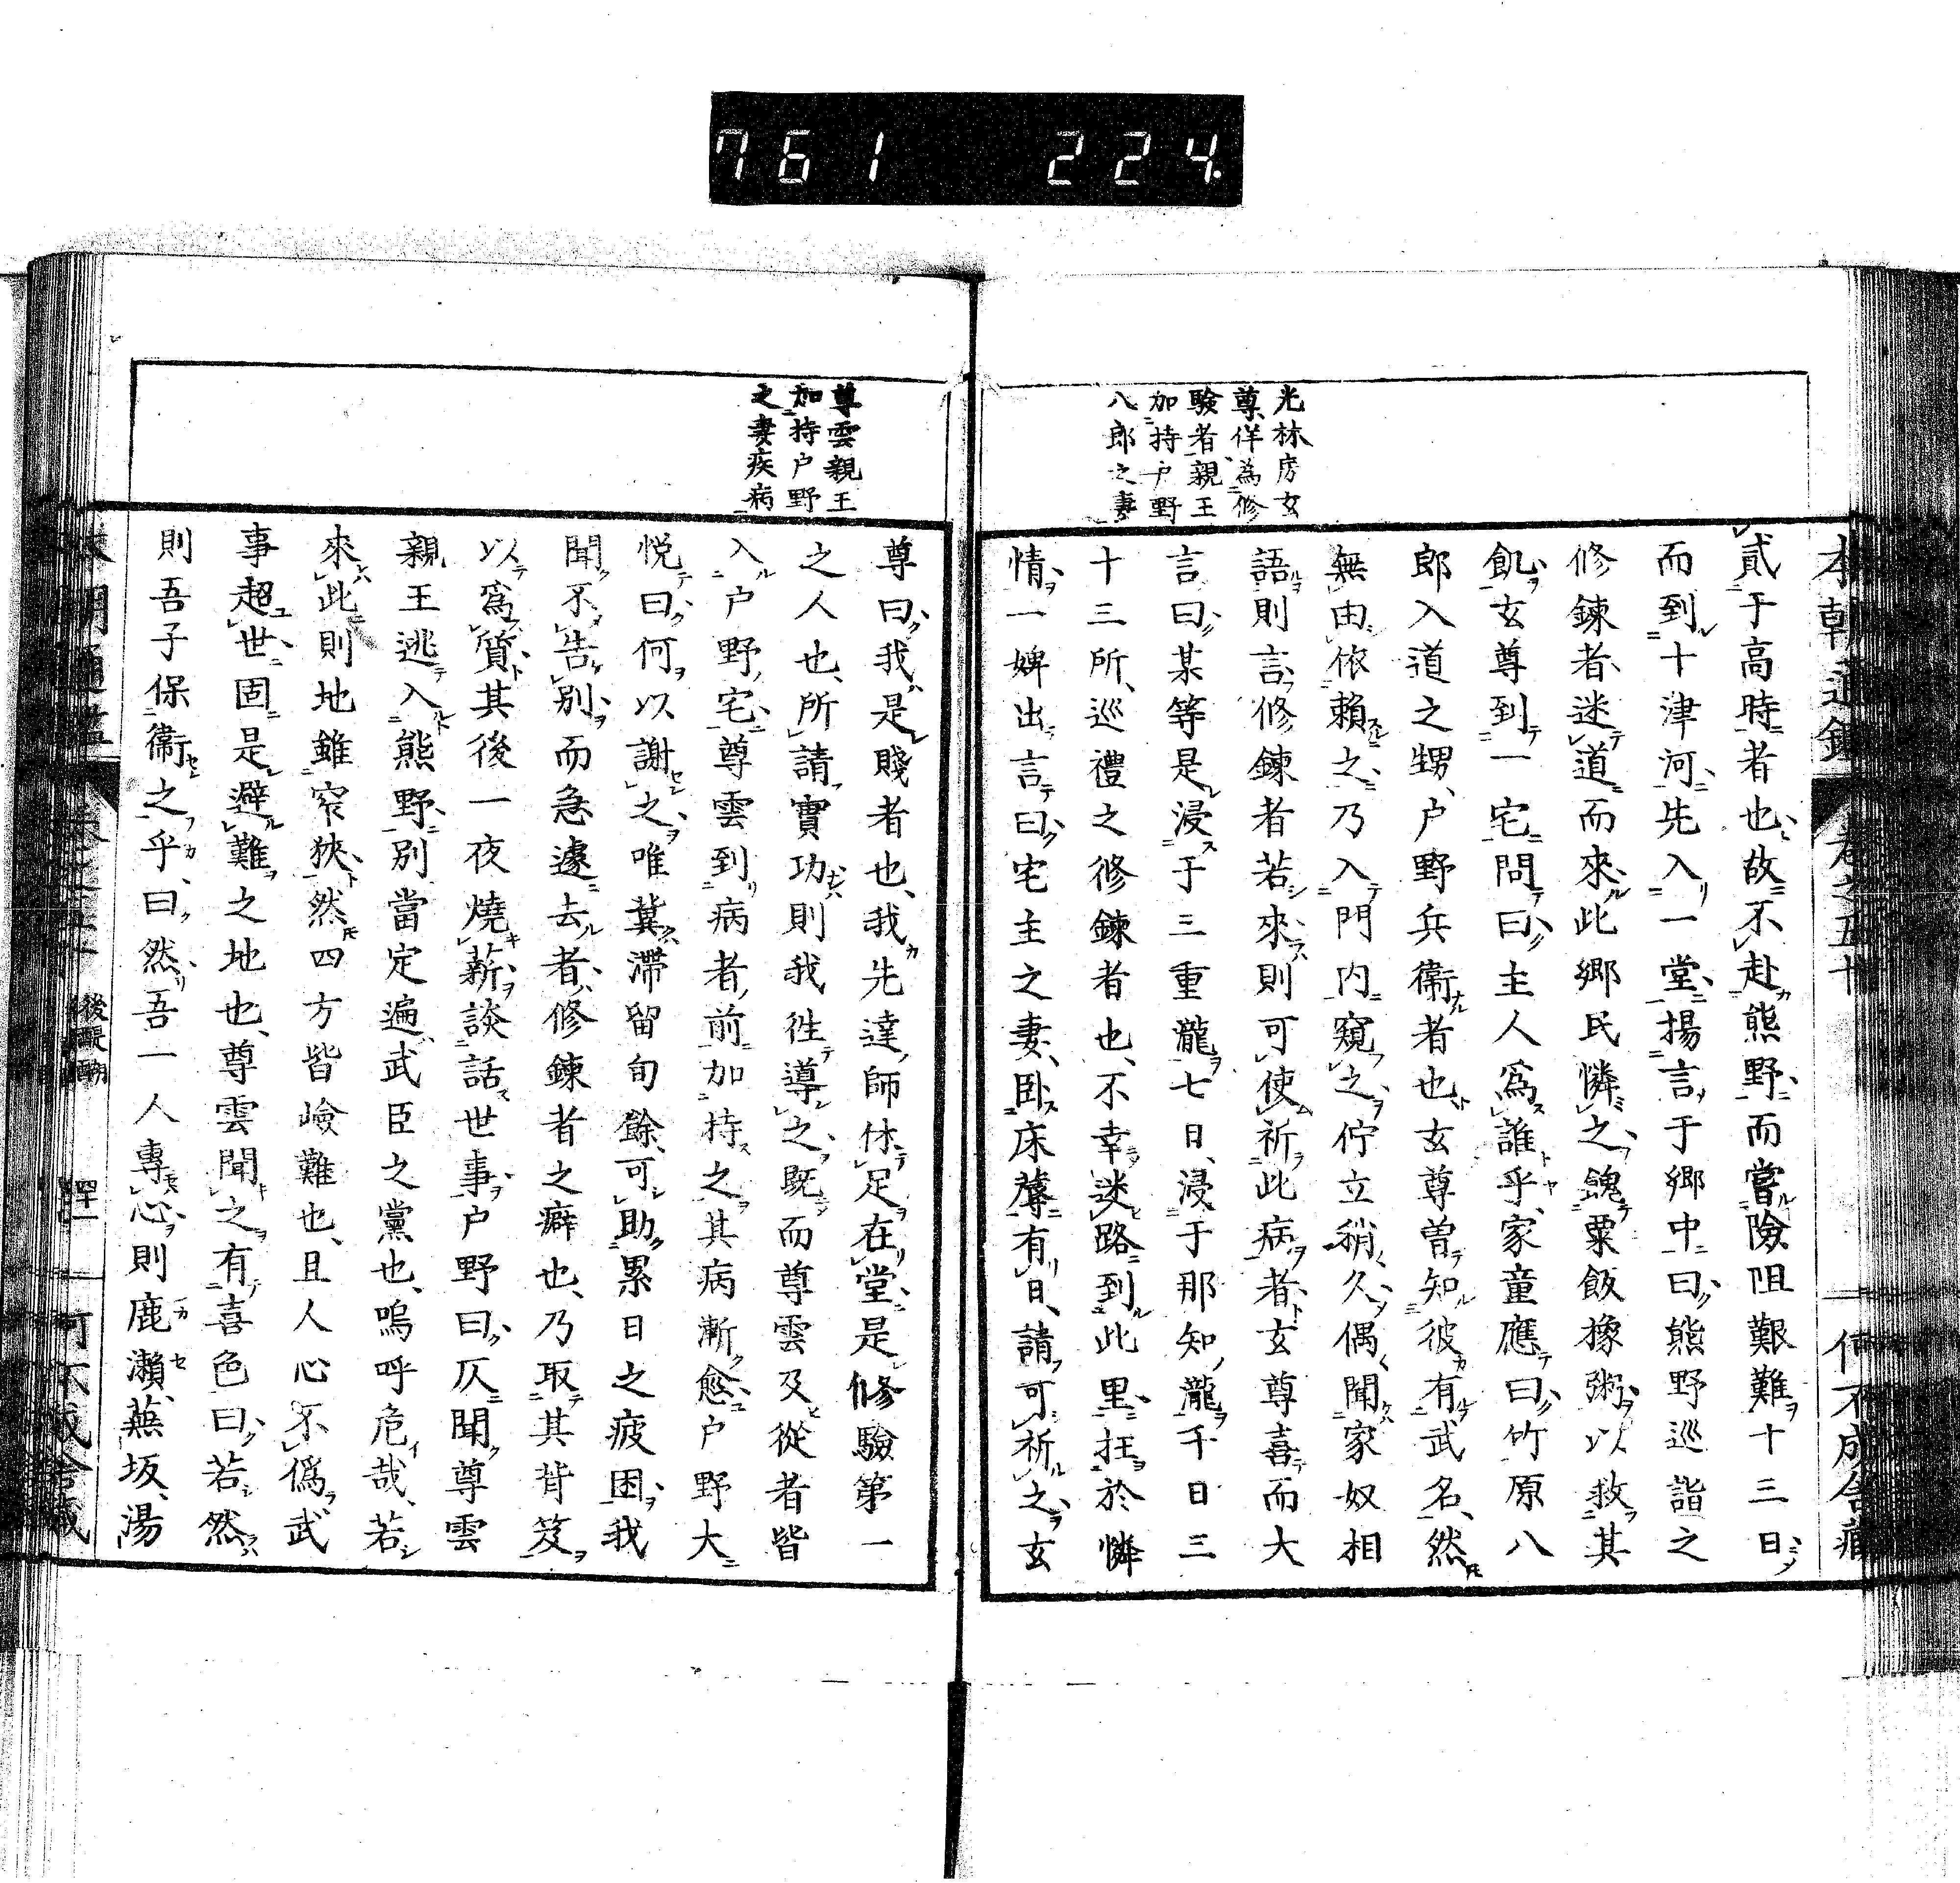 761 224.
本朝通鑑 卷之五十
光林房玄
尊佯為修
驗者親王
加持戸野
八郎之妻
貳于高時者也故不赴熊野而嘗險阻艱難十三日
而到十津河先入一堂揚言于郷中曰熊野巡詣之
修鍊者迷道而來此郷民憐之餽粟飯橡粥以救其
飢玄尊到一宅問曰主人爲誰乎家童應曰竹原八
郎入道之甥戸野兵衞者也玄尊曽知彼有武名然
無由依賴之乃入門内窺之佇立稍久偶聞家奴相
語則言修鍊者若來則可使祈此病者玄尊喜而大
言曰某等是浸于三重瀧七日浸于那知瀧千日三
十三所巡禮之修鍊者也不幸迷路到此里抂於憐
情一婢出言曰宅主之妻臥床蓐有日請可祈之玄
尊雲親王
加持戸野
之妻疾病
尊曰我是賤者也我先達師休足在堂是修驗第一
之人也所請實功則我徃導之既而尊雲及從者皆
入戸野宅尊雲到病者前加持之其病漸愈戸野大
悦曰何以謝之唯冀滯留旬餘可助累日之疲困我
聞不告別而急遽去者修鍊者之癖也乃取其背笈
以爲質其後一夜燒薪談話世事戸野曰仄聞尊雲
親王逃入熊野別當定遍武臣之黨也嗚呼危哉若
來此則地雖窄狹然四方皆嶮難也且人心不僞武
事超世固是避難之地也尊雲聞之有喜色曰若然
則吾子保衞之乎曰然吾一人專心則鹿瀨蕪坂湯
後醍醐 四十一